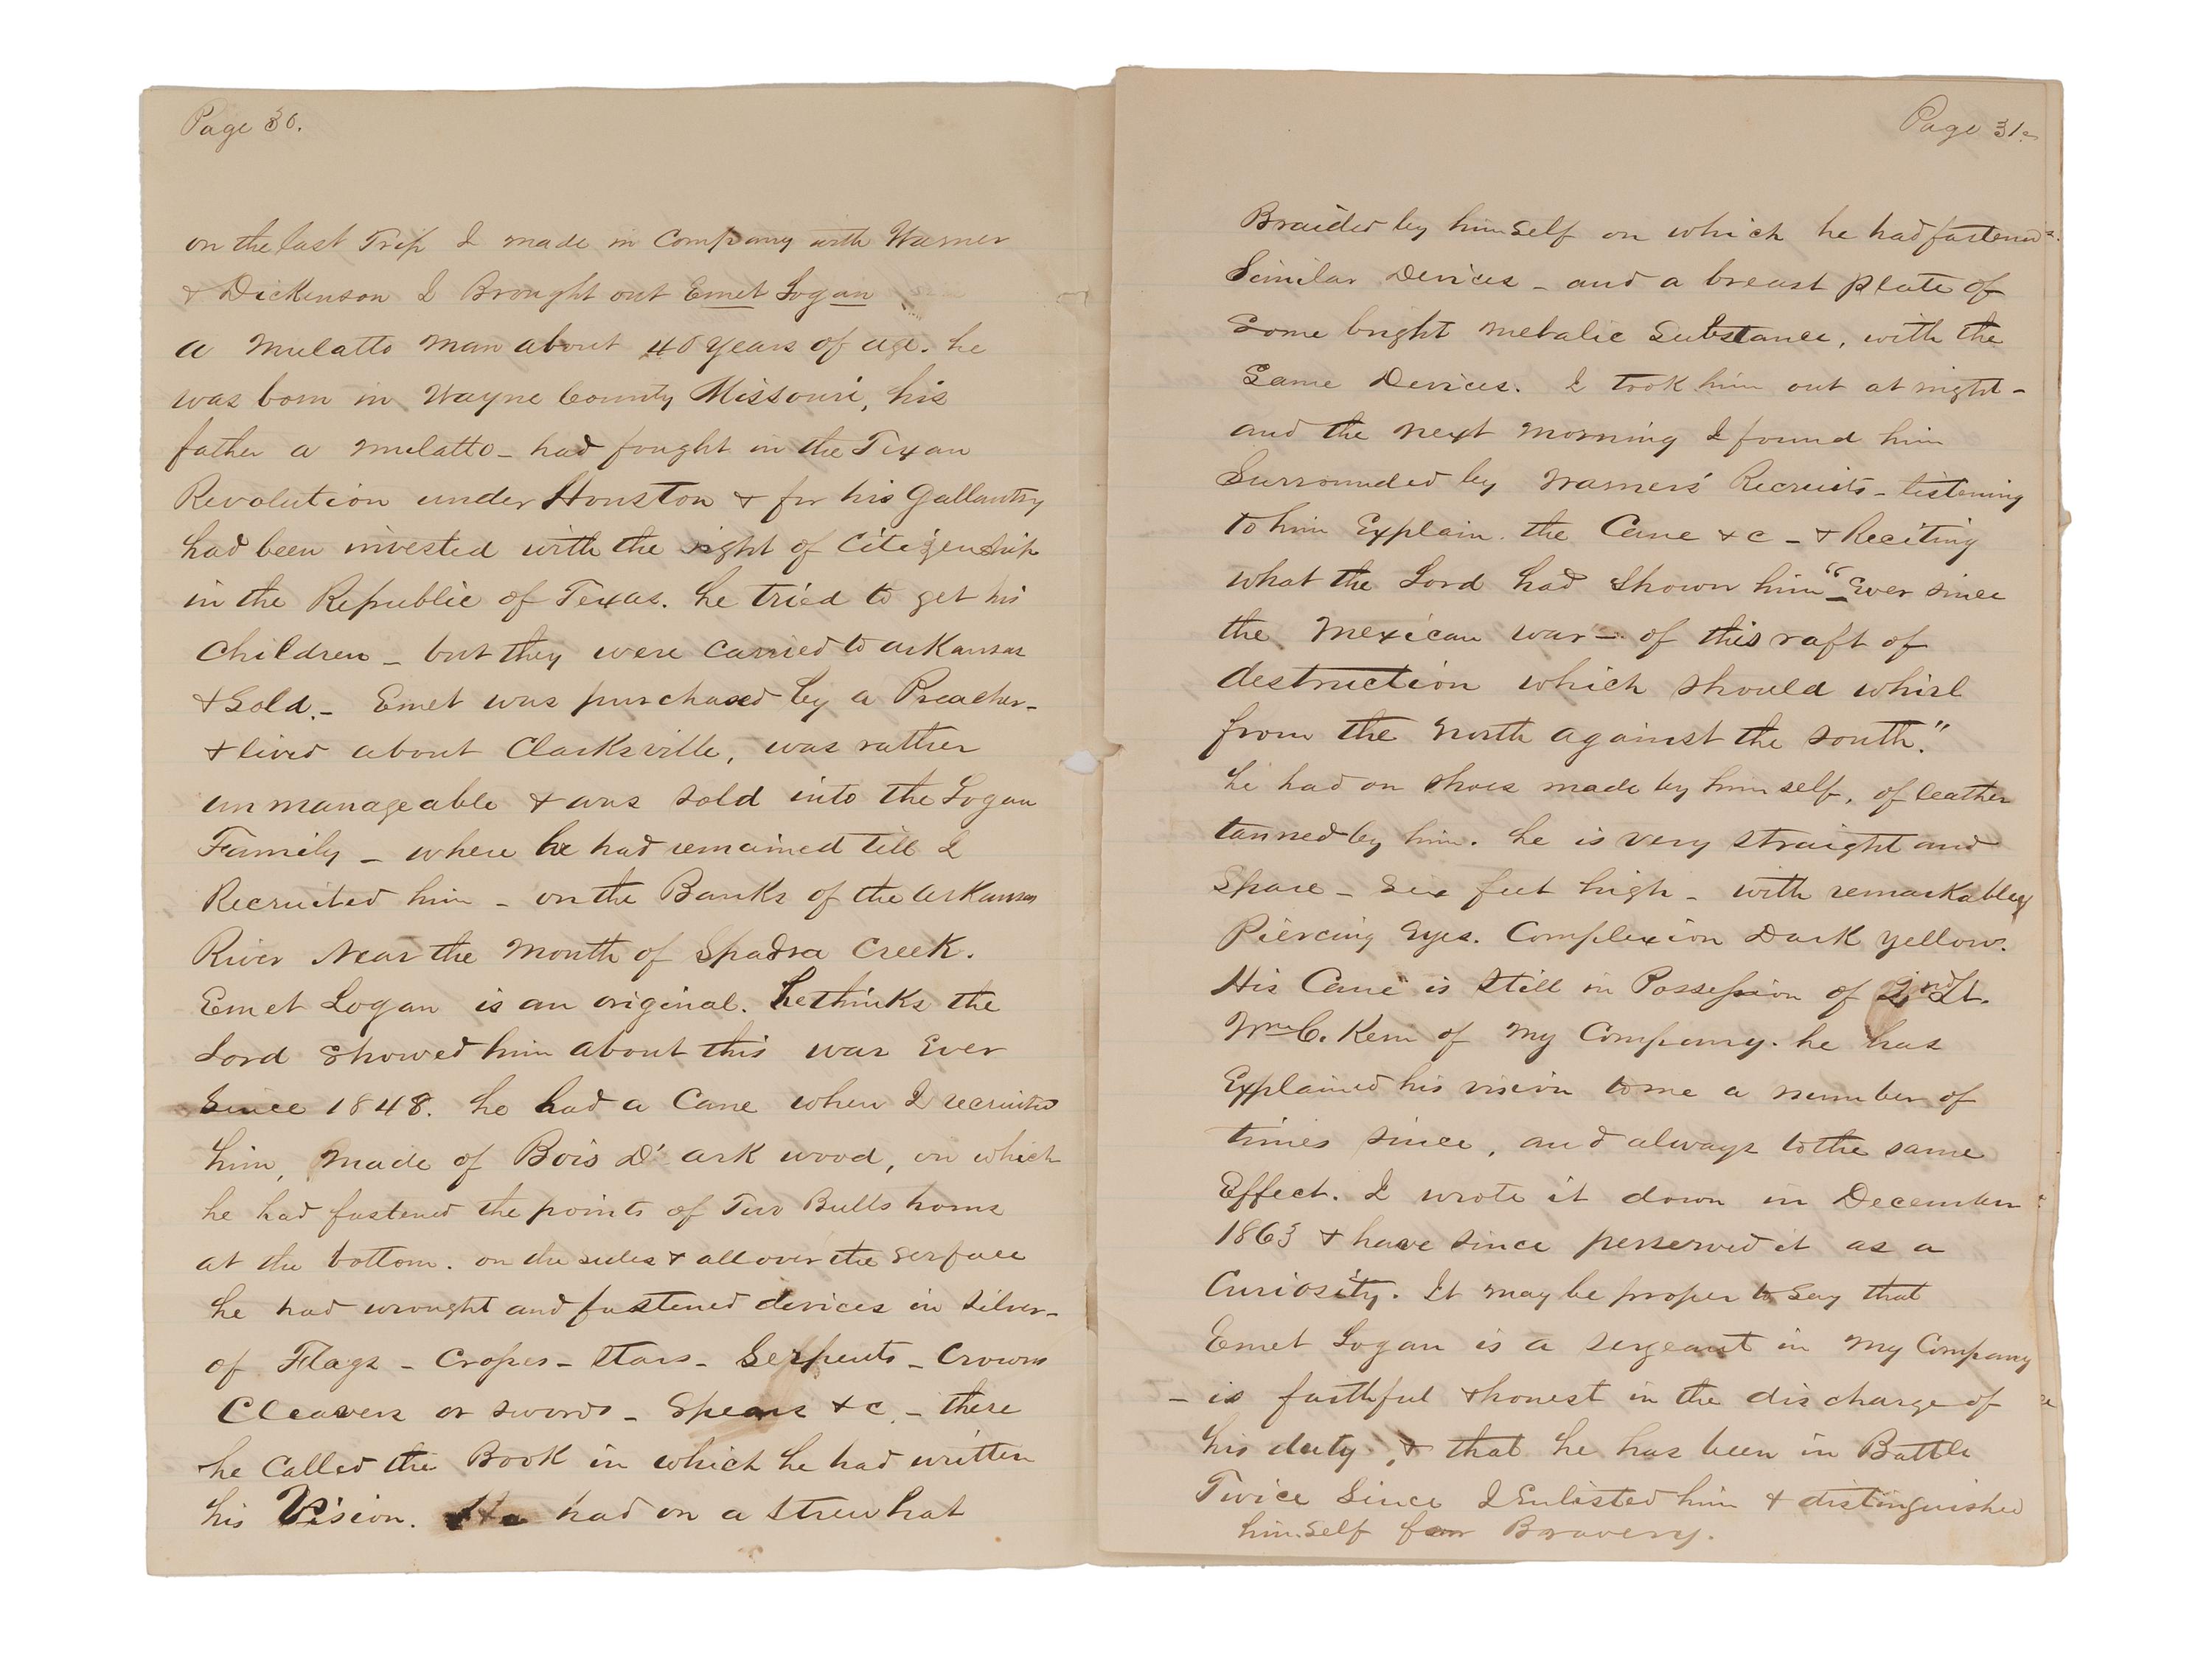 Page 30.
on the last Trip I made in Company with Warner
& Dickenson I Brought out Emet Logan
a Mulatto man about 40 years of age. he
was born in Wayne County Missouri, his
father a mulatto - had fought in the Texan
Revolution under Houston & for his Gallantry
had been invested with the right of Citizenship
in the Republic of Texas. he tried to get his
children - but they were carried to arkansas
& Sold. - Emet was purchased by a Preacher -
& lived about Clarksville, was rather
unmanageable & was sold into the Logan
Family - where he had remained till I
Recruited him - on the Banks of the arkansas
River Near the Mouth of Spadra Creek.
Emet Logan is an original. he thinks the
Lord Showed him about this war Ever
Since 1848. he had a Cane when I recruited
him, made of Bois D' ark wood, on which
he had fastened the points of Two Bulls horns
at the bottom. on the sides & all over the serface
he had wrought and fastened devices in silver -
of Flags - Crosses - Stars - Serpents - Crowns
Cleavers or swords - Spears &c. - these
he Called the Book in which he had written
his Vision. He had on a Straw hat
Page 31.
Braided by himself on which he had fastened
Similar Devices - and a breast plate of
Some bright metalic Substance, with the
Same Devices. I took him out at night -
and the next morning I found him
Surrounded by Warners' Recruits - listening
to him Explain the Cane &c - & Reciting
what the Lord had Shown him "Ever since
the Mexican war - of this raft of
destruction which should whirl
from the North against the South."
he had on shoes made by himself, of leather
tanned by him. he is very straight and
Spare - six feet high - with remarkabley
Piercing Eyes. Complexion Dark yellow.
His Cane is still in Possession of 2nd Lt.
Wm C. Kern of my Company. he has
Explained his vision to me a number of
times since, and always to the same
Effect. I wrote it down in December
1863 & have since perserved it as a
Curiosity. It may be proper to Say that
Emet Logan is a sergeant in my Company
- is faithful & honest in the discharge of
his duty, & that he has been in Battle
Twice Since I Enlisted him & distinguished
himself for Bravery.